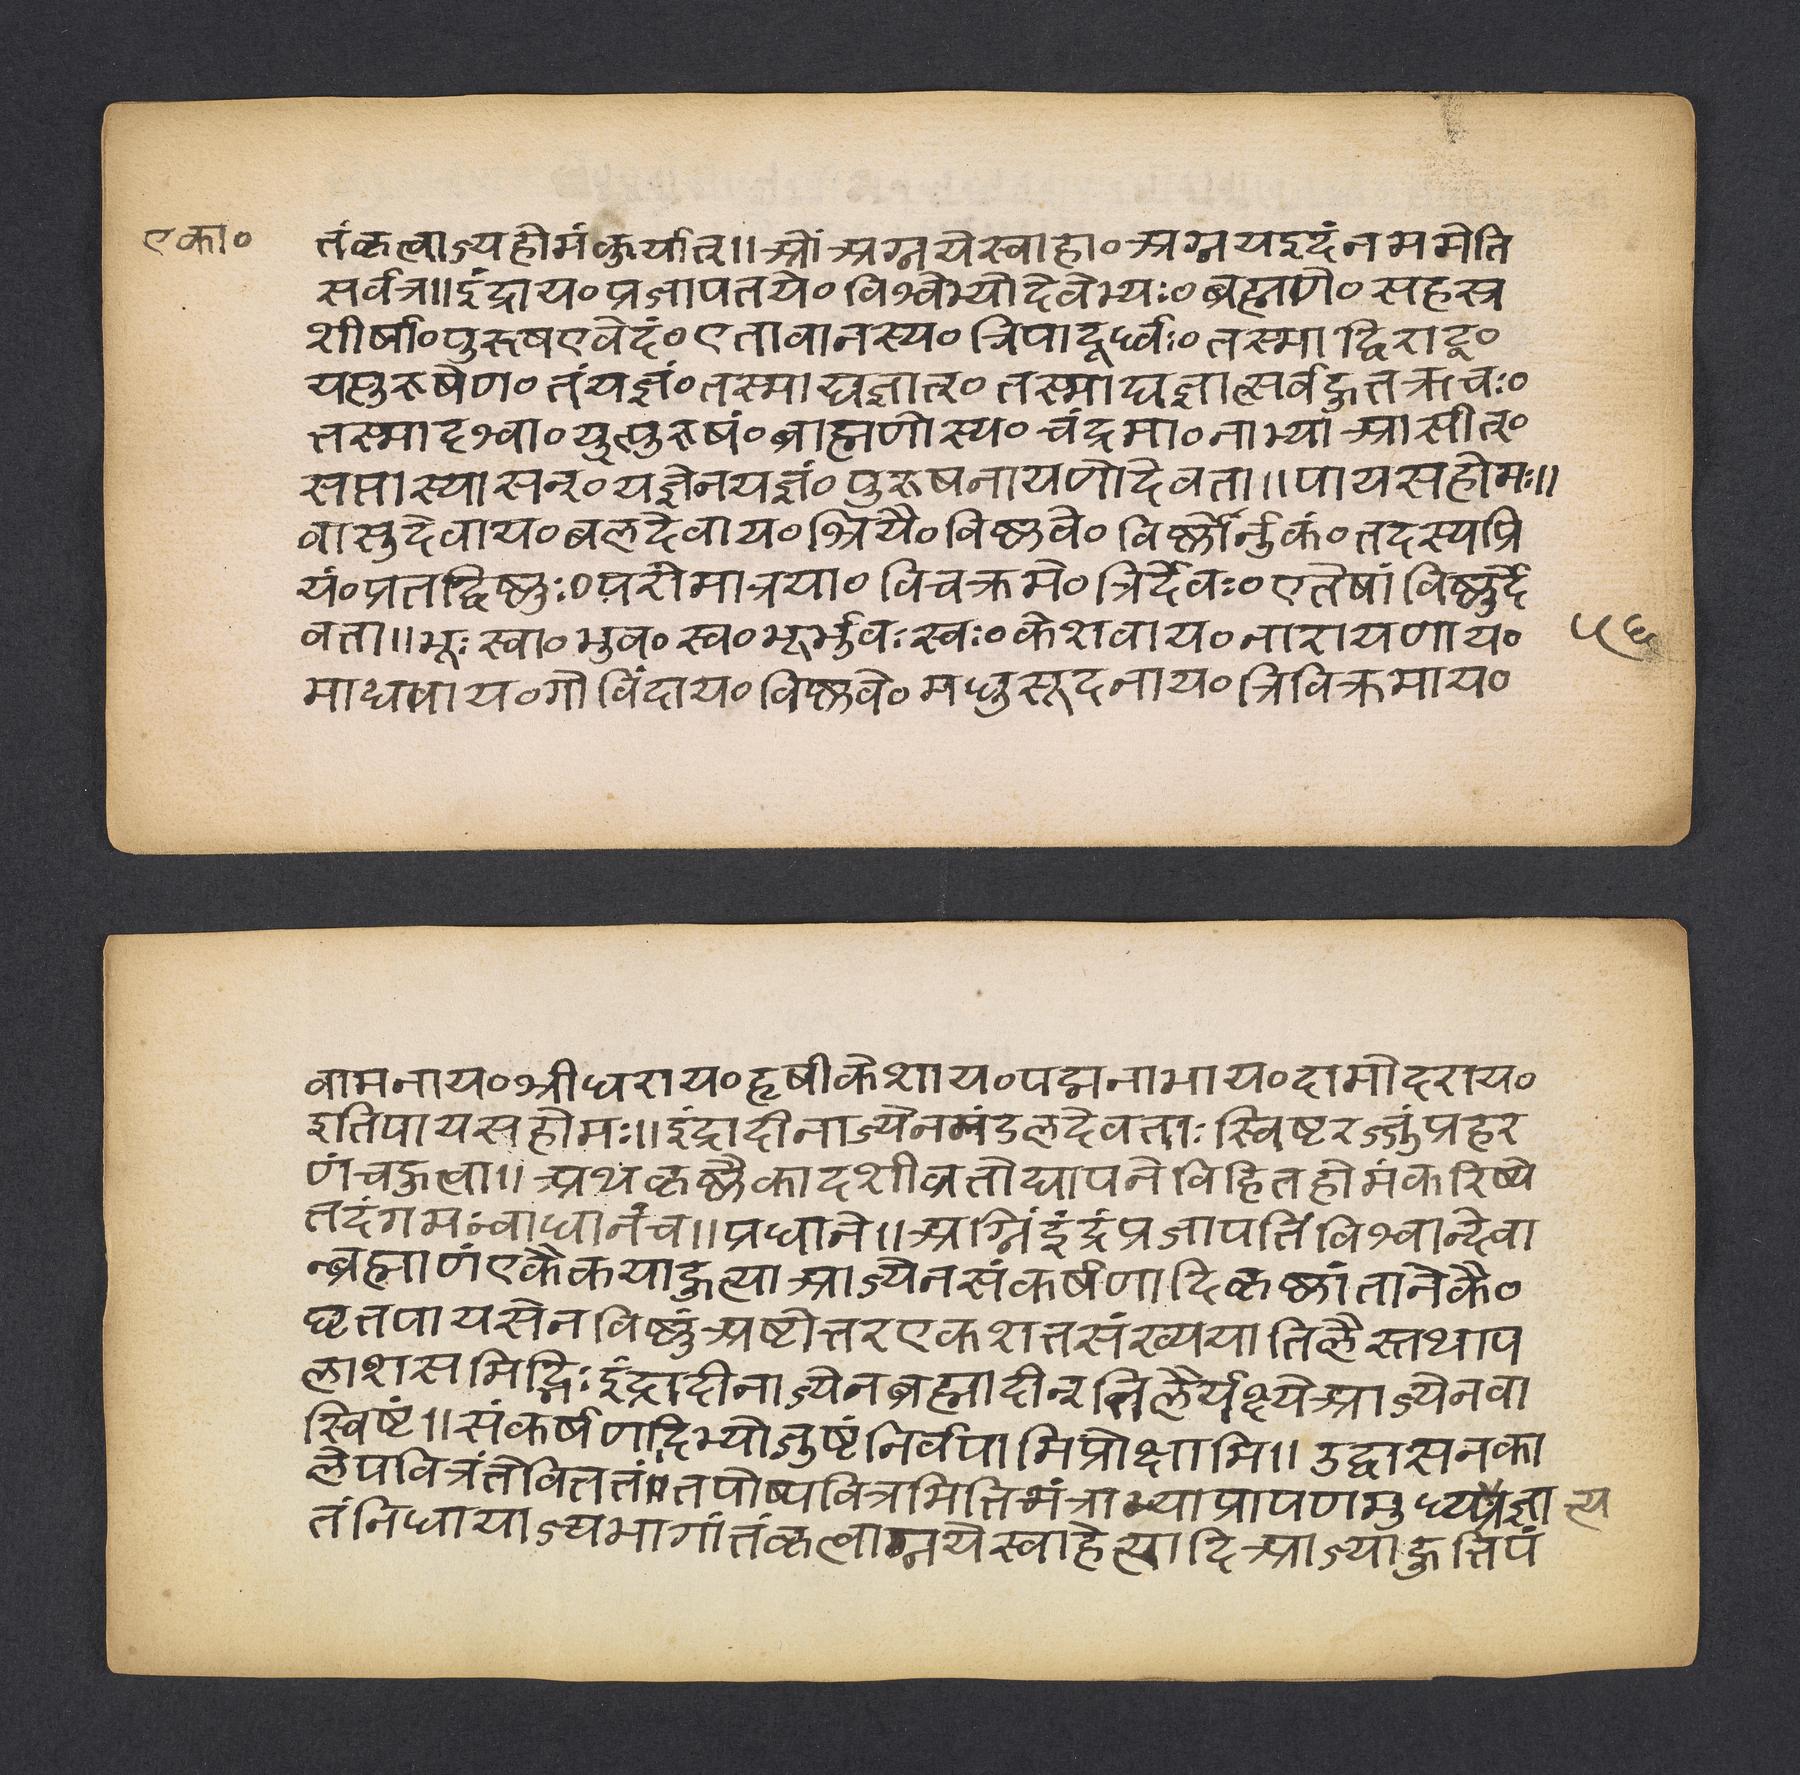 एका०
तंकृत्वाऽयहोमंकुर्यात्॥ ओं अग्नयेस्वाहा० अग्नयइदंनममेति
सर्वत्र॥ इंद्राय० प्रजापतये० विश्वेभ्योदेवेभ्यः० ब्रह्मणे० सहस्त्र
शीर्षा० पुरूषएवेदं० एतावानस्य० त्रिपादूर्ध्वः० तस्माद्विराट्०
यत्पुरूषेण० तंयज्ञं० तस्माद्यज्ञात्० तस्माद्यज्ञात्सर्वहुतऋचः०
तस्मादश्वा० यत्पुरूषं० ब्राह्मणोस्य० चंद्रमा० नाभ्यां आसीत्०
सप्तास्यासन्० यज्ञेनयज्ञं० पुरूषनायणोदेवता॥ पायसहोमः॥
वासुदेवाय० बलदेवाय० श्रियै० विष्णवे० विष्णोर्नुकं० तदस्यप्रि
यं० प्रतद्विष्णुः० परोमात्रया० विचक्रमे० त्रिर्देवः० एतेषांविष्णुर्दे
वता॥ भूः स्वा० भुव० स्व० भूर्भुवः स्वः० केशवाय० नारायणाय०
५६
माधवाय० गोविंदाय० विष्णवे० मधुसूदनाय० त्रिविक्रमाय०
वामनाय० श्रीधराय० हृषीकेशाय० पद्मनाभाय० दामोदराय०
इतिपायसहोमः॥ इंद्रादीनाज्येनमंडलदेवताः स्विष्टरज्जुंप्रहर
णंचहुत्वा॥ अथकृष्णैकादशीव्रतोद्यापनेविहितहोमंकरिष्ये
तदंगमन्वाधानंच॥ प्रधाने॥ अग्निंइंद्रंप्रजापतिंविश्वान्देवा
न्ब्रह्माणंएकैकयाहुत्याआज्येनसंकर्षणादिकृष्णांतानेकै०
घृतपायसेनविष्णुंअष्टोत्तरएकशतसंख्ययातिलैस्तथाप
लाशसमिद्भिः इंद्रादीनाज्येनब्रह्मादीन्तिलैर्यक्ष्येआज्येनवा
स्विष्टं॥ संकर्षणादिभ्योजुष्टंनिर्वपामिप्रोक्षामि॥ उद्वासनका
लेपवित्रंतेविततंतपोष्पवित्रमितिमंत्राभ्याप्रापणमुध्यप्रज्ञात्य
तंनिधायाज्यभागांतंकृत्वाग्नयेस्वाहेत्यादिआज्याहुतिपं